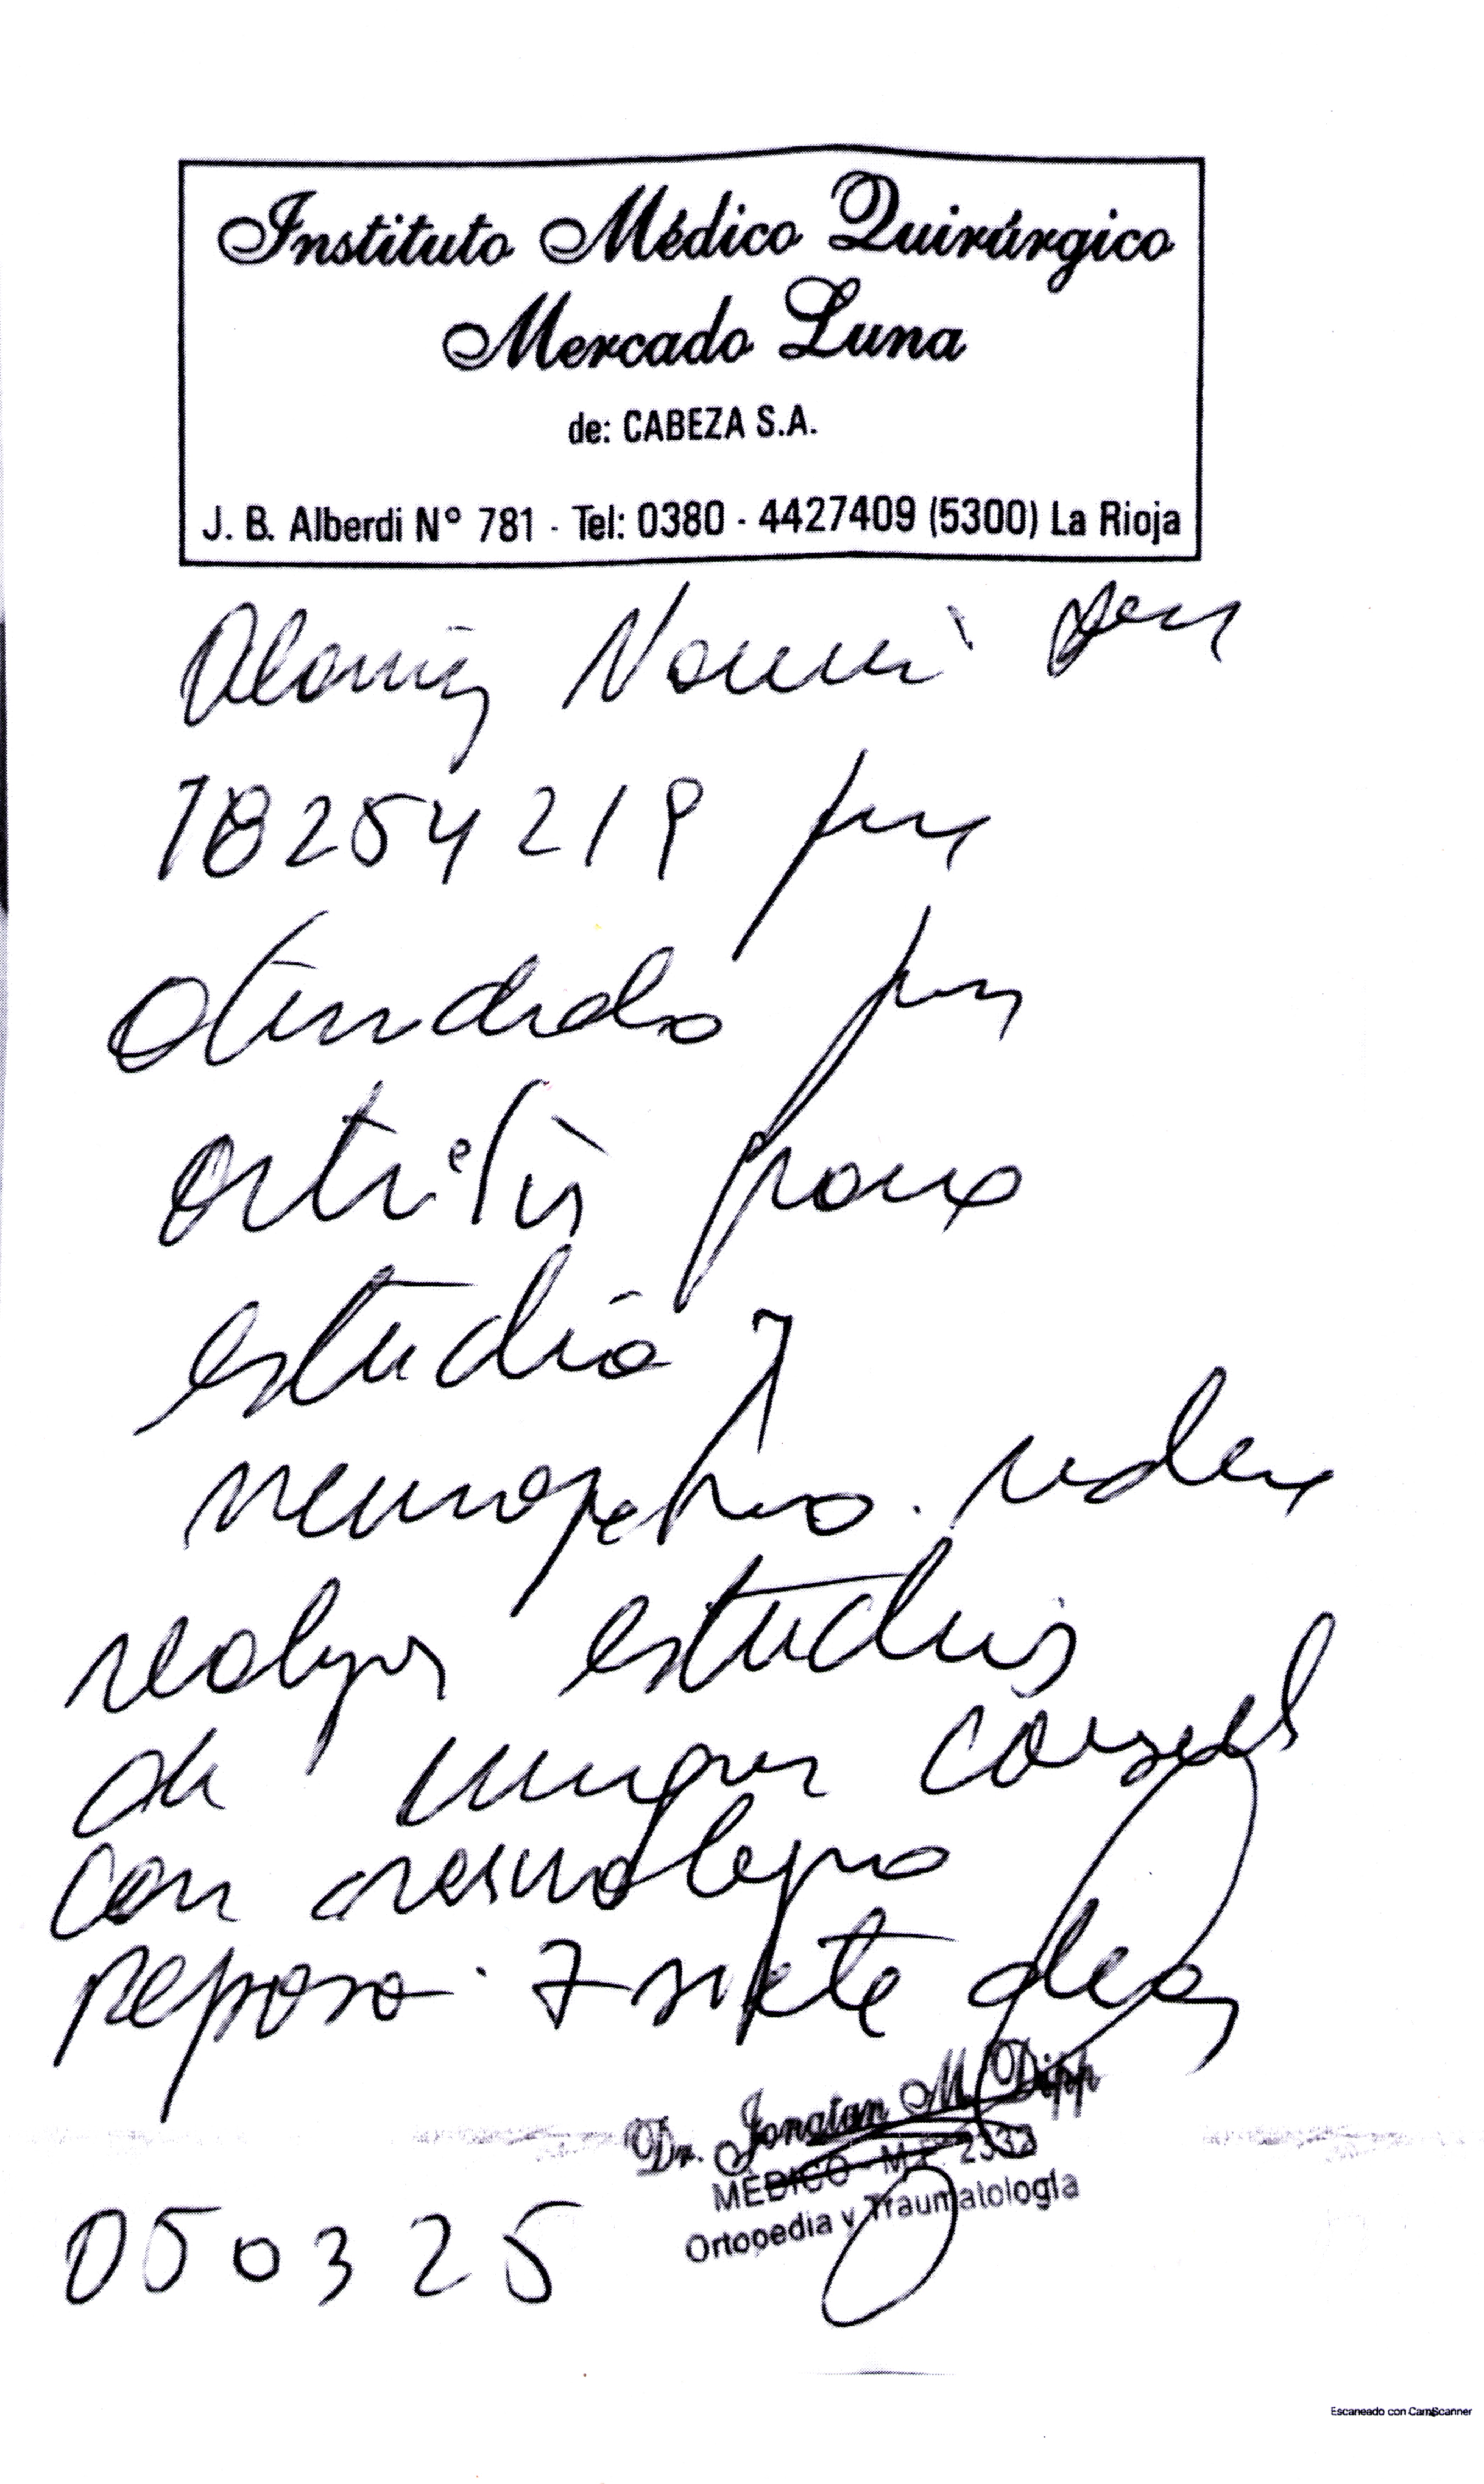 Instituto Médico Quirúrgico
Mercado Luna
de: CABEZA S.A.
J. B. Alberdi Nº 781 - Tel: 0380 - 4427409 (5300) La Rioja
Alaniz Noemi
18254219 fue
atendido por
artritis
estudio y
neuropatia.
realizar estudios
de
con
reposo. 7 siete dias
Dr. Jonatan M. Dipp
MEDICO - M.P. 2332
Ortopedia y Traumatología
050325
Escaneado con CamScanner